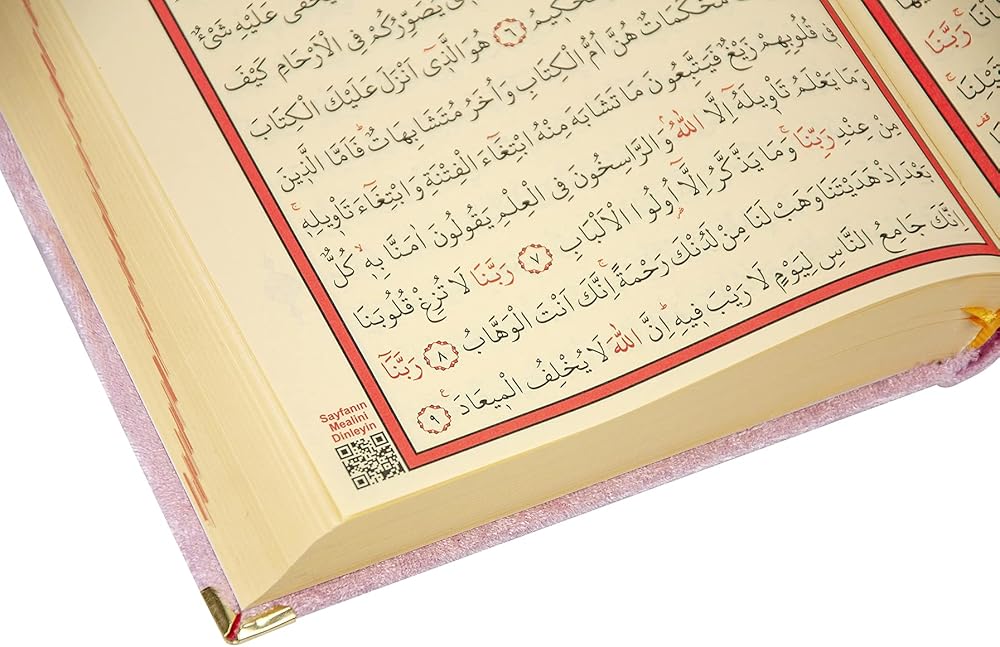 يَخْفٰى عَلَيْهِ شَيْءٌ
يُصَوِّرُكُمْ فِي الْاَرْحَامِ كَيْفَ
الْحَك۪يمُ ﴿٦﴾ هُوَ الَّذ۪ٓي اَنْزَلَ عَلَيْكَ الْكِتَابَ
مُحْكَمَاتٌ هُنَّ اُمُّ الْكِتَابِ وَاُخَرُ مُتَشَابِهَاتٌۜ فَاَمَّا الَّذ۪ينَ
ف۪ي قُلُوبِهِمْ زَيْغٌ فَيَتَّبِعُونَ مَا تَشَابَهَ مِنْهُ ابْتِغَٓاءَ الْفِتْنَةِ وَابْتِغَٓاءَ تَاْو۪يلِه۪ۚ
وَمَا يَعْلَمُ تَاْو۪يلَهُٓ اِلَّا اللّٰهُۢ وَالرَّاسِخُونَ فِي الْعِلْمِ يَقُولُونَ اٰمَنَّا بِه۪ۙ كُلٌّ
مِنْ عِنْدِ رَبِّنَاۚ وَمَا يَذَّكَّرُ اِلَّٓا اُو۬لُوا الْاَلْبَابِ ﴿٧﴾ رَبَّنَا لَا تُزِغْ قُلُوبَنَا
بَعْدَ اِذْ هَدَيْتَنَا وَهَبْ لَنَا مِنْ لَدُنْكَ رَحْمَةًۚ اِنَّكَ اَنْتَ الْوَهَّابُ ﴿٨﴾ رَبَّنَٓا
اِنَّكَ جَامِعُ النَّاسِ لِيَوْمٍ لَا رَيْبَ ف۪يهِۜ اِنَّ اللّٰهَ لَا يُخْلِفُ الْم۪يعَادَ۟ ﴿٩﴾
Sayfanın
Mealini
Dinleyin
رَبَّنَا